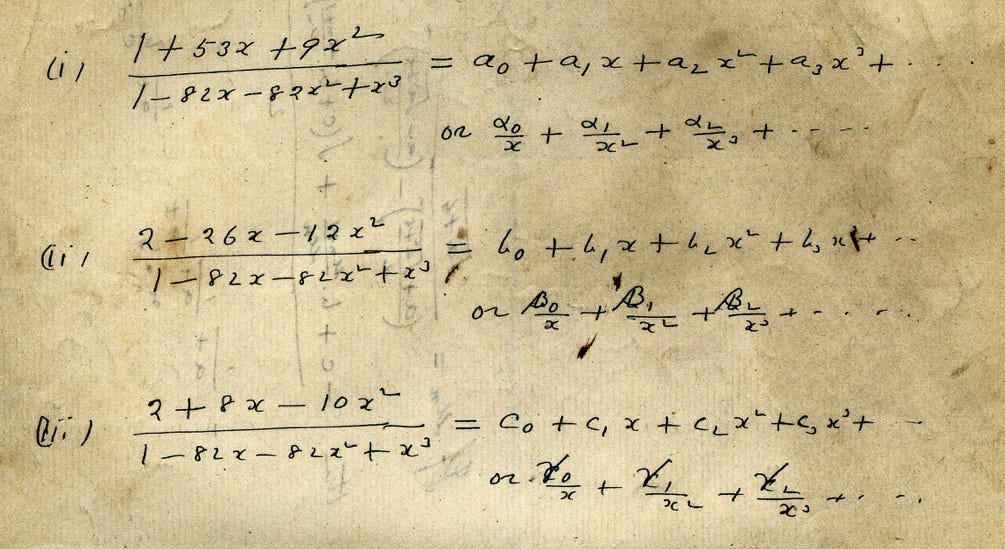 (i) (1 + 53x + 9x²)/(1 - 82x - 82x² + x³) = a₀ + a₁x + a₂x² + a₃x³ + ....
or α₀/x + α₁/x² + α₂/x³ + .....
(ii) (2 - 26x - 12x²)/(1 - 82x - 82x² + x³) = b₀ + b₁x + b₂x² + b₃x³ + ..
or β₀/x + β₁/x² + β₂/x³ + .....
(iii) (2 + 8x - 10x²)/(1 - 82x - 82x² + x³) = c₀ + c₁x + c₂x² + c₃x³ + ..
or γ₀/x + γ₁/x² + γ₂/x³ + ....